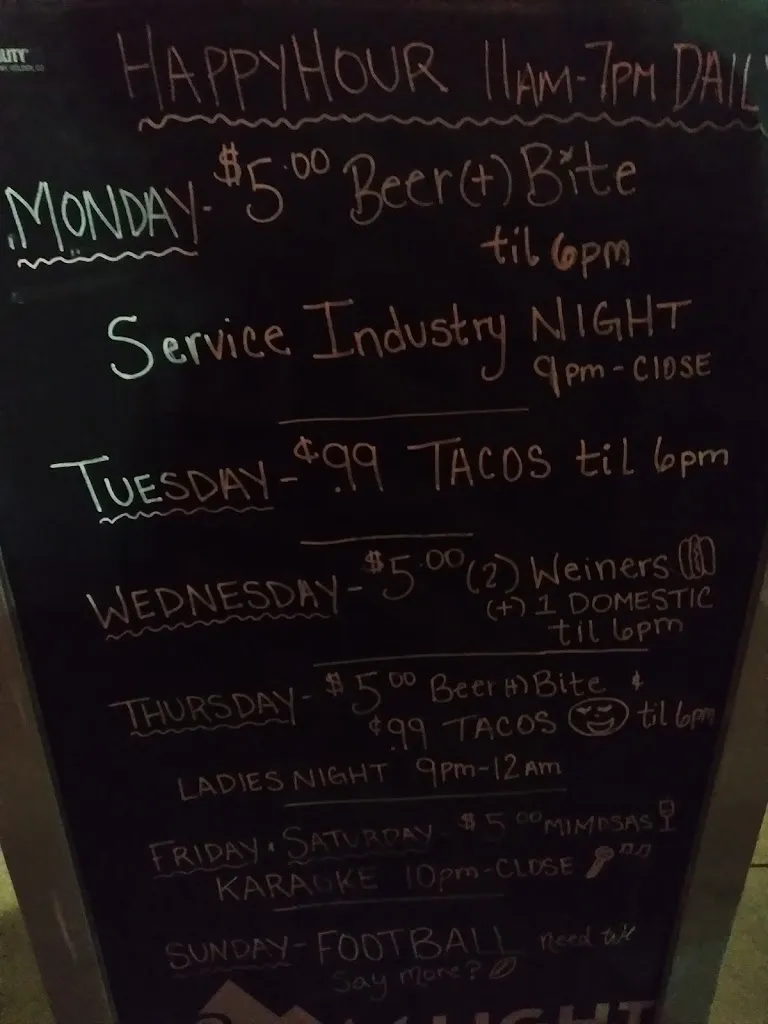 HAPPY HOUR 11AM-7PM DAIL
MONDAY- $5.00 Beer(+) Bite
til 6pm
Service Industry NIGHT
9pm-CLOSE
TUESDAY- ¢.99 TACOS til 6pm
WEDNESDAY- $5.00 (2) Weiners
(+) 1 DOMESTIC
til 6pm
THURSDAY- $5.00 Beer(+) Bite &
¢.99 TACOS til 6pm
LADIES NIGHT 9pm-12AM
FRIDAY & SATURDAY- $5.00 MIMOSAS
KARAOKE 10pm-CLOSE
SUNDAY- FOOTBALL need we
Say more?
LIGHT